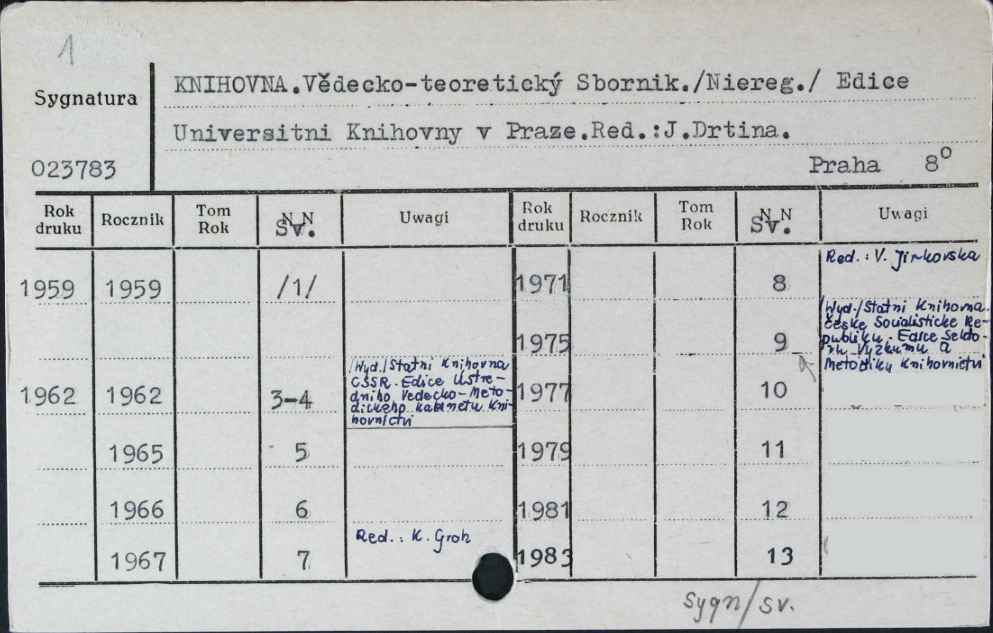 1
Sygnatura
KNIHOVNA.Vědecko-teoretický Sbornik./Niereg./ Edice
Universitni Knihovny v Praze.Red.:J.Drtina.
023783
Praha 8°
Rok druku Rocznik Tom Rok NN Sv. Uwagi Rok druku Rocznik Tom Rok NN Sv. Uwagi
Red.: V. Jirkovska
1959 1959 /1/ 1971 8
/Wyd./Statni Knihovna
České Socialisticke Re-
publiky. Edice Sekto-
1975 9
ru Vyzkumu a
Metodiky Knihovnictvi
/Wyd./Statni Knihovna
ČSSR. Edice Ustre-
1962 1962 3-4 1977 10
dniho Vedecko-Meto-
dickeho Kabinetu Kni-
hovnictvi
1965 5 1979 11
1966 6 1981 12
Red.: K. Groh
1967 7 1983 13
sygn/sv.